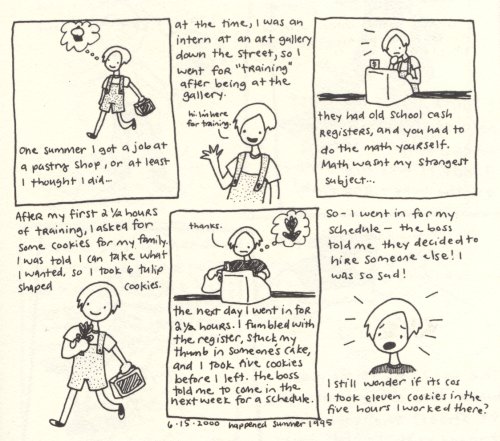 One summer I got a job at
a pastry shop, or at least
I thought I did...
at the time, I was an
intern at an art gallery
down the street, so I
went for "training"
after being at the
gallery.
hi. i'm here
for training.
$
they had old school cash
registers, and you had to
do the math yourself.
Math wasnt my strongest
subject...
After my first 2 1/2 hours
of training, I asked for
some cookies for my family.
I was told I can take what
I wanted, so I took 6 tulip
shaped cookies.
thanks.
the next day I went in for
2 1/2 hours. I fumbled with
the register, stuck my
thumb in someone's cake,
and I took five cookies
before I left. the boss
told me to come in the
next week for a schedule.
So - I went in for my
schedule - the boss
told me they decided to
hire someone else! I
was so sad!
I still wonder if its cos
I took eleven cookies in the
five hours I worked there?
6.15.2000 happened summer 1995